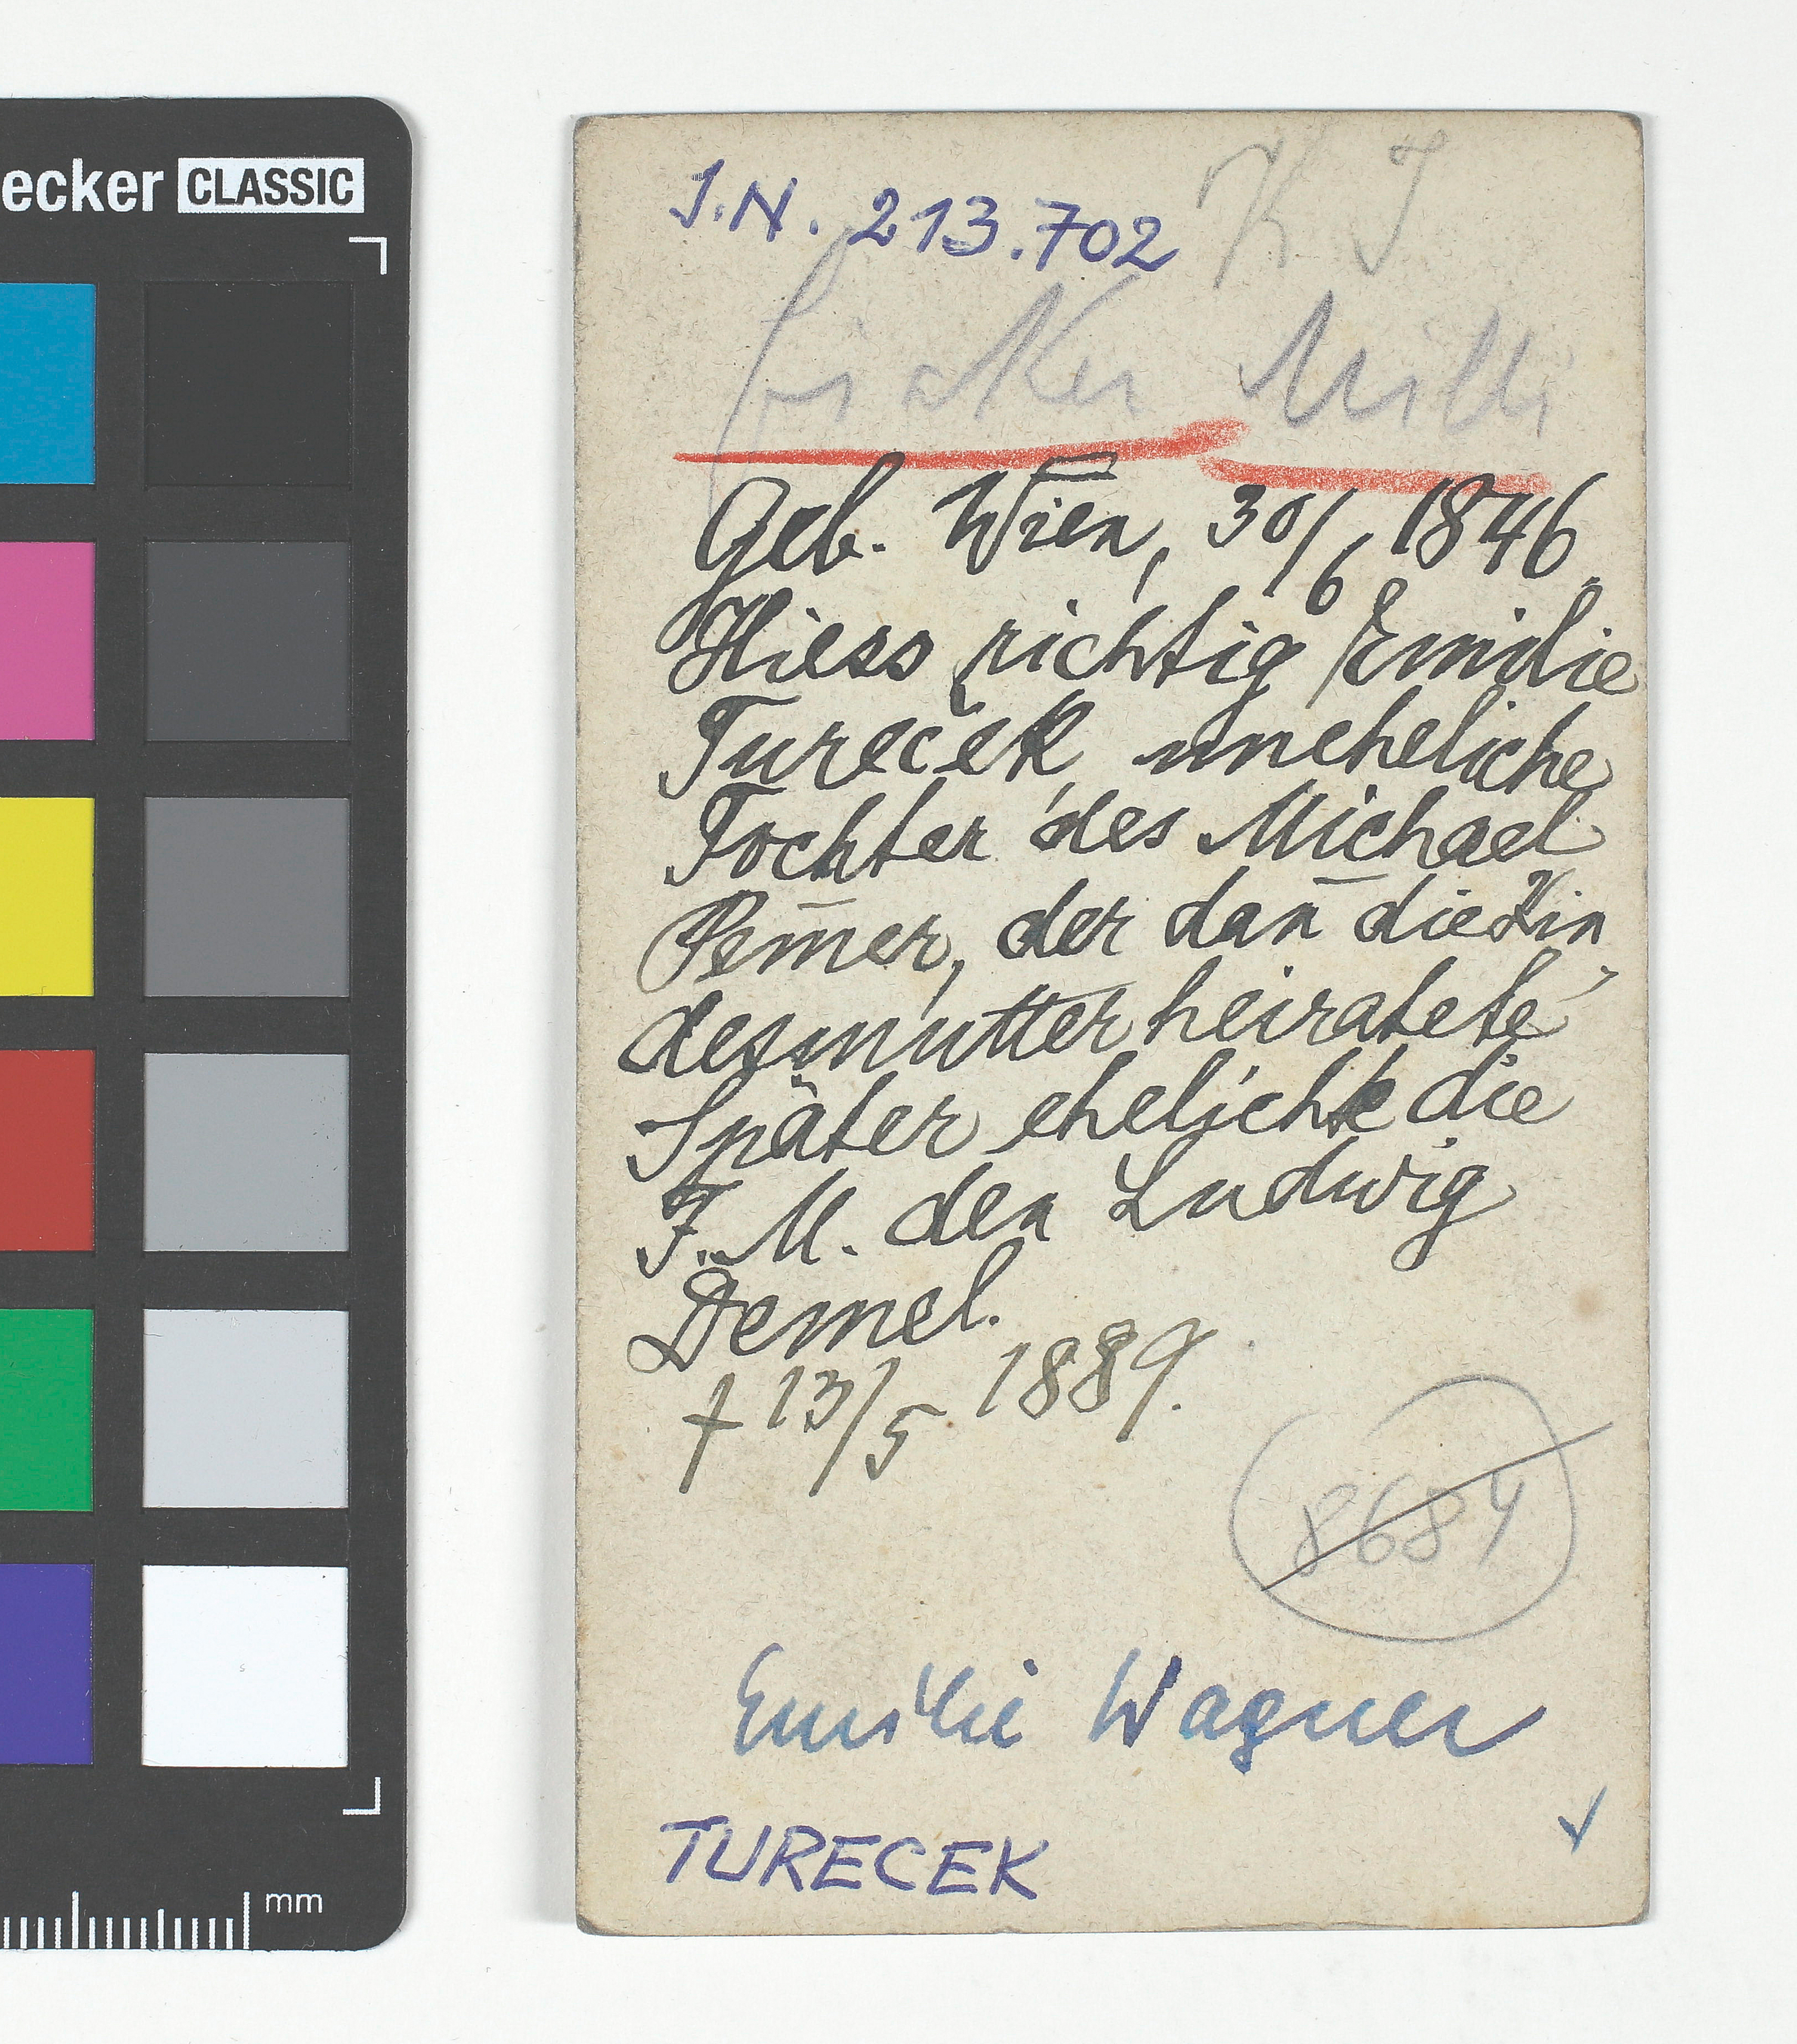 ecker CLASSIC
J.N. 213.702 K J
fiaker Milli
Geb. Wien, 30/6 1846.
Hiess richtig Emilie
Tureček, uneheliche
Tochter des Michael
Pem̄er, der dan̄ die Kin
desmutter heiratete
Später ehelichte die
F. M. den Ludwig
Demel.
† 13/5 1889.
8684
Emilie Wagner
TURECEK
mm